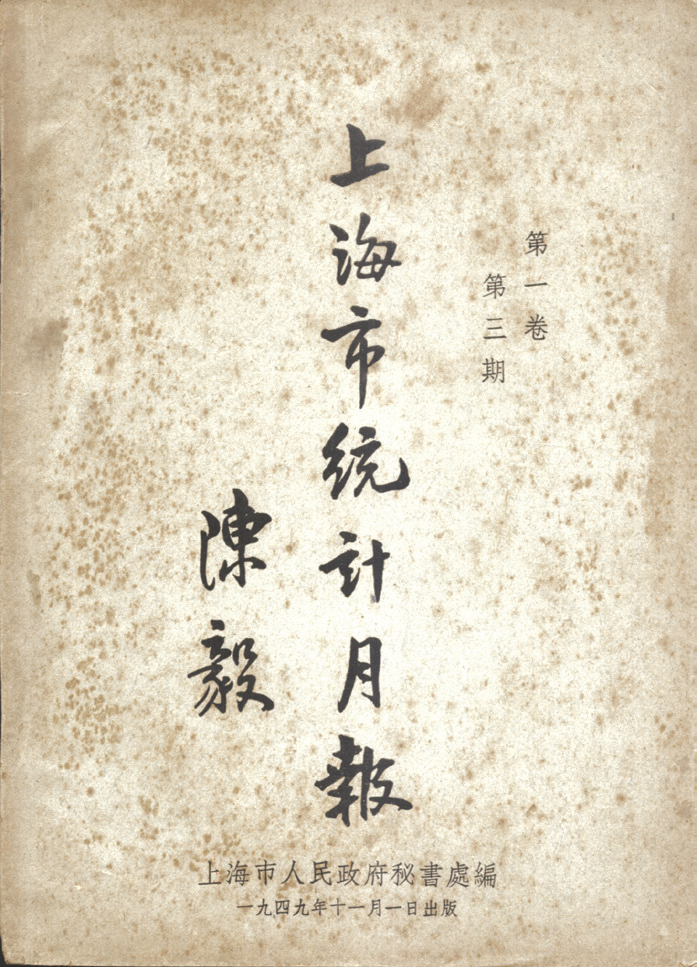 第一卷
第三期
上海市統計月報
陳毅
上海市人民政府秘書處編
一九四九年十一月一日出版